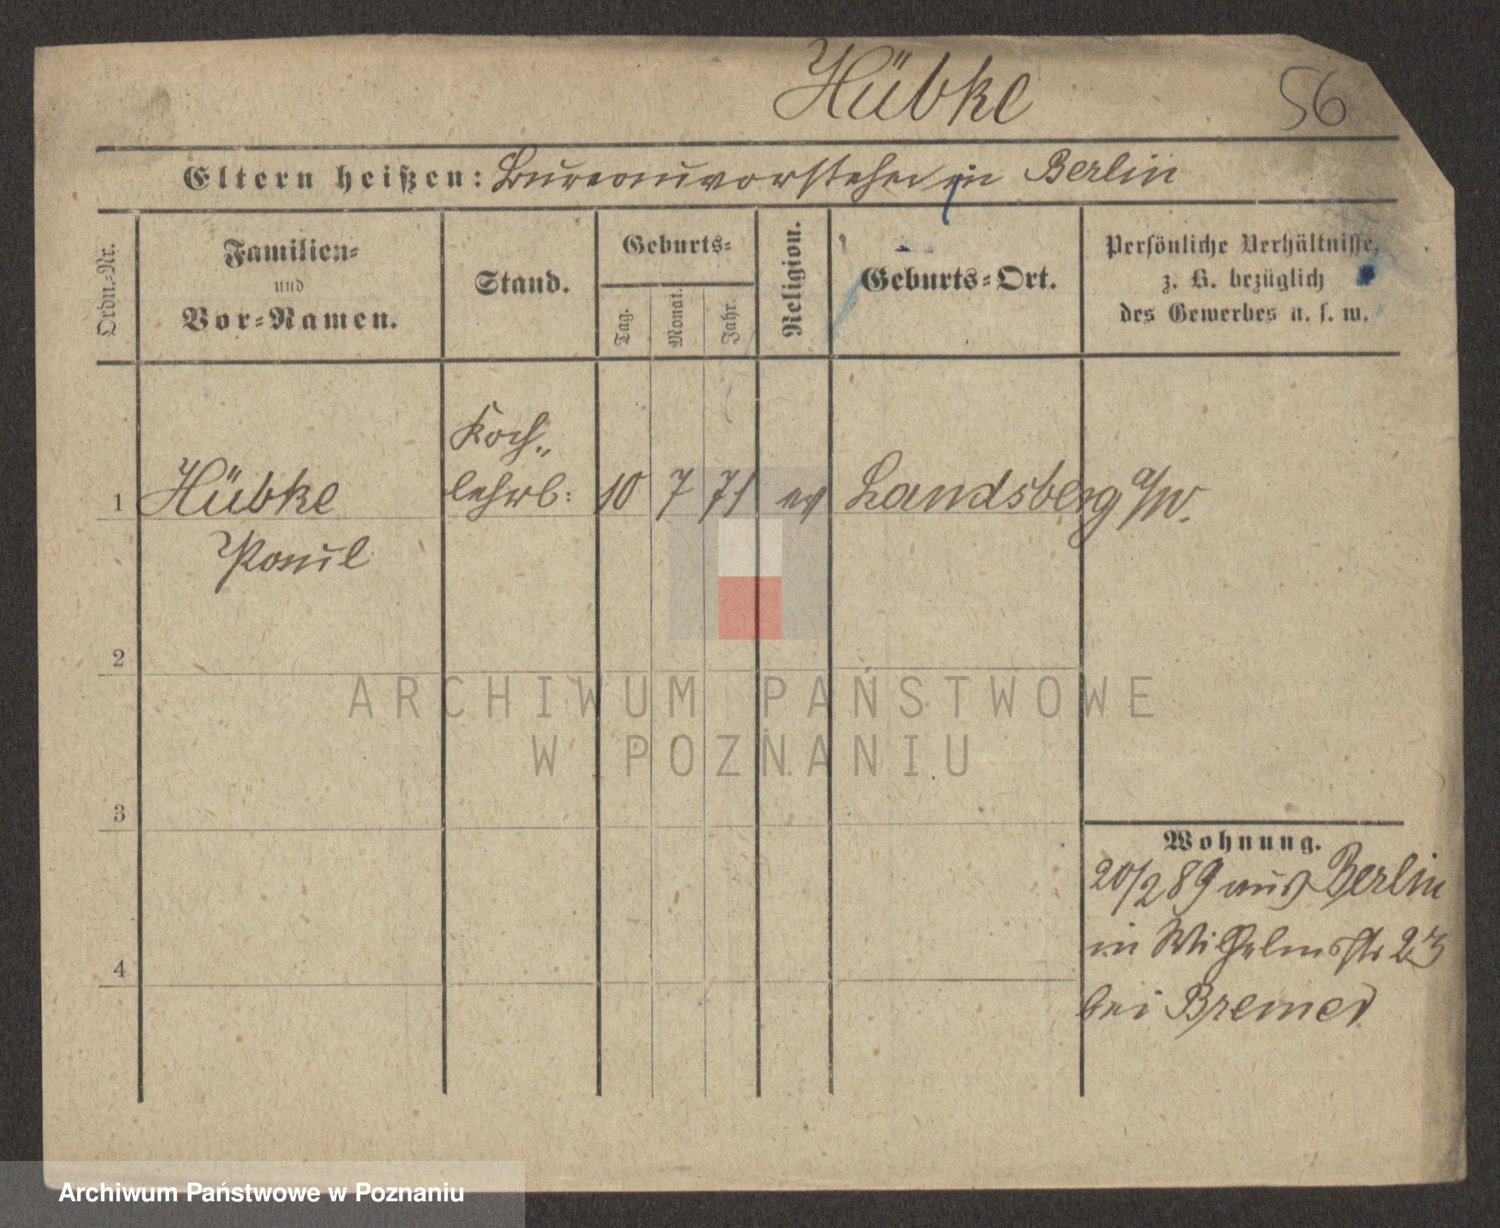 Hübke 56
Eltern heißen: Bureauvorsteher in Berlin
Ordn.-Nr.
Familien-
und
Vor-Namen.
Stand.
Geburts-
Tag.
Monat.
Jahr.
Religion.
Geburts-Ort.
Persönliche Verhältnisse,
z. B. bezüglich
des Gewerbes u. s. w.
Koch-
1 Hübke lehrl: 10 7 71 ev Landsberg a/W.
Paul
2
3
4
Wohnung.
20/2 89 aus Berlin
in Wilhelmstr 23
bei Bremer
ARCHIWUM PAŃSTWOWE
W POZNANIU
Archiwum Państwowe w Poznaniu